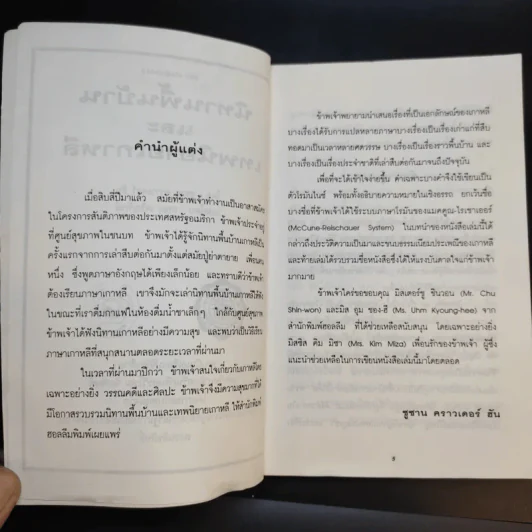 คำนำผู้แต่ง
เมื่อสิบสี่ปีมาแล้ว สมัยที่ข้าพเจ้าทำงานเป็นอาสาสมัคร
ในโครงการสันติภาพของประเทศสหรัฐอเมริกา ข้าพเจ้าประจำอยู่
ที่ศูนย์สุขภาพในชนบท ข้าพเจ้าได้รู้จักนิทานพื้นบ้านเกาหลีเป็น
ครั้งแรกจากการเล่าสืบต่อกันมาตั้งแต่สมัยปู่ย่าตายาย เพื่อนคน
หนึ่ง ซึ่งพูดภาษาอังกฤษได้เพียงเล็กน้อย และทราบดีว่าข้าพเจ้า
ต้องเรียนภาษาเกาหลี เขาจึงมักจะเล่านิทานพื้นบ้านเกาหลีให้ฟัง
ในขณะที่เราดื่มกาแฟในห้องดื่มน้ำชาเล็กๆ ใกล้กับศูนย์สุขภาพ
ข้าพเจ้าได้ฟังนิทานเกาหลีอย่างมีความสุข และพบว่าเป็นวิธีเรียน
ภาษาเกาหลีที่สนุกสนานตลอดระยะเวลาที่ผ่านมา
ในเวลาที่ผ่านมาปีกว่า ข้าพเจ้าสนใจเกี่ยวกับเกาหลีโดย
เฉพาะอย่างยิ่ง วรรณคดีและศิลปะ ข้าพเจ้าจึงมีความสุขมากที่ได้
มีโอกาสรวบรวมนิทานพื้นบ้านและเทพนิยายเกาหลี ให้สำนักพิมพ์
ฮอลลิมพิมพ์เผยแพร่
ข้าพเจ้าพยายามนำเสนอเรื่องที่เป็นเอกลักษณ์ของเกาหลี
บางเรื่องได้รับการแปลหลายภาษาบางเรื่องเป็นเรื่องเก่าแก่ที่สืบ
ทอดมาเป็นเวลาหลายศตวรรษ บางเรื่องเป็นเรื่องราวพื้นบ้าน และ
บางเรื่องเป็นเรื่องประจำชาติที่เล่าสืบต่อกันมาจนถึงปัจจุบัน
เพื่อที่จะได้เข้าใจง่ายขึ้น คำเฉพาะบางคำจึงใช้เขียนเป็น
ตัวโรมันไนซ์ พร้อมทั้งอธิบายความหมายในเชิงอรรถ ยกเว้นชื่อ
บางชื่อที่ข้าพเจ้าได้ใช้ระบบภาษาโรมันของแมคคูณ-ไรเชาเออร์
(McCune-Reischauer System) ในบทนำของหนังสือเล่มนี้ได้
กล่าวถึงประวัติความเป็นมาและขนบธรรมเนียมประเพณีของเกาหลี
และท้ายเล่มได้รวบรวมเชื่อหนังสือซึ่งได้ให้แรงบันดาลใจแก่ข้าพเจ้า
มากมาย
ข้าพเจ้าใคร่ขอขอบคุณ มิสเตอร์ชู ชินวอน (Mr. Chu
Shin-won) และมิส อูม ของ-ฮี (Ms. Uhm Kyoung-hee) จาก
สำนักพิมพ์ฮอลลิม ที่ได้ช่วยเหลือสนับสนุน โดยเฉพาะอย่างยิ่ง
มิสซิส คิม มิซา (Mrs. Kim Miza) เพื่อนรักของข้าพเจ้า ผู้ซึ่ง
แนะนำช่วยเหลือในการเขียนหนังสือเล่มนี้มาโดยตลอด
ซูซาน คราวเดอร์ ฮัน